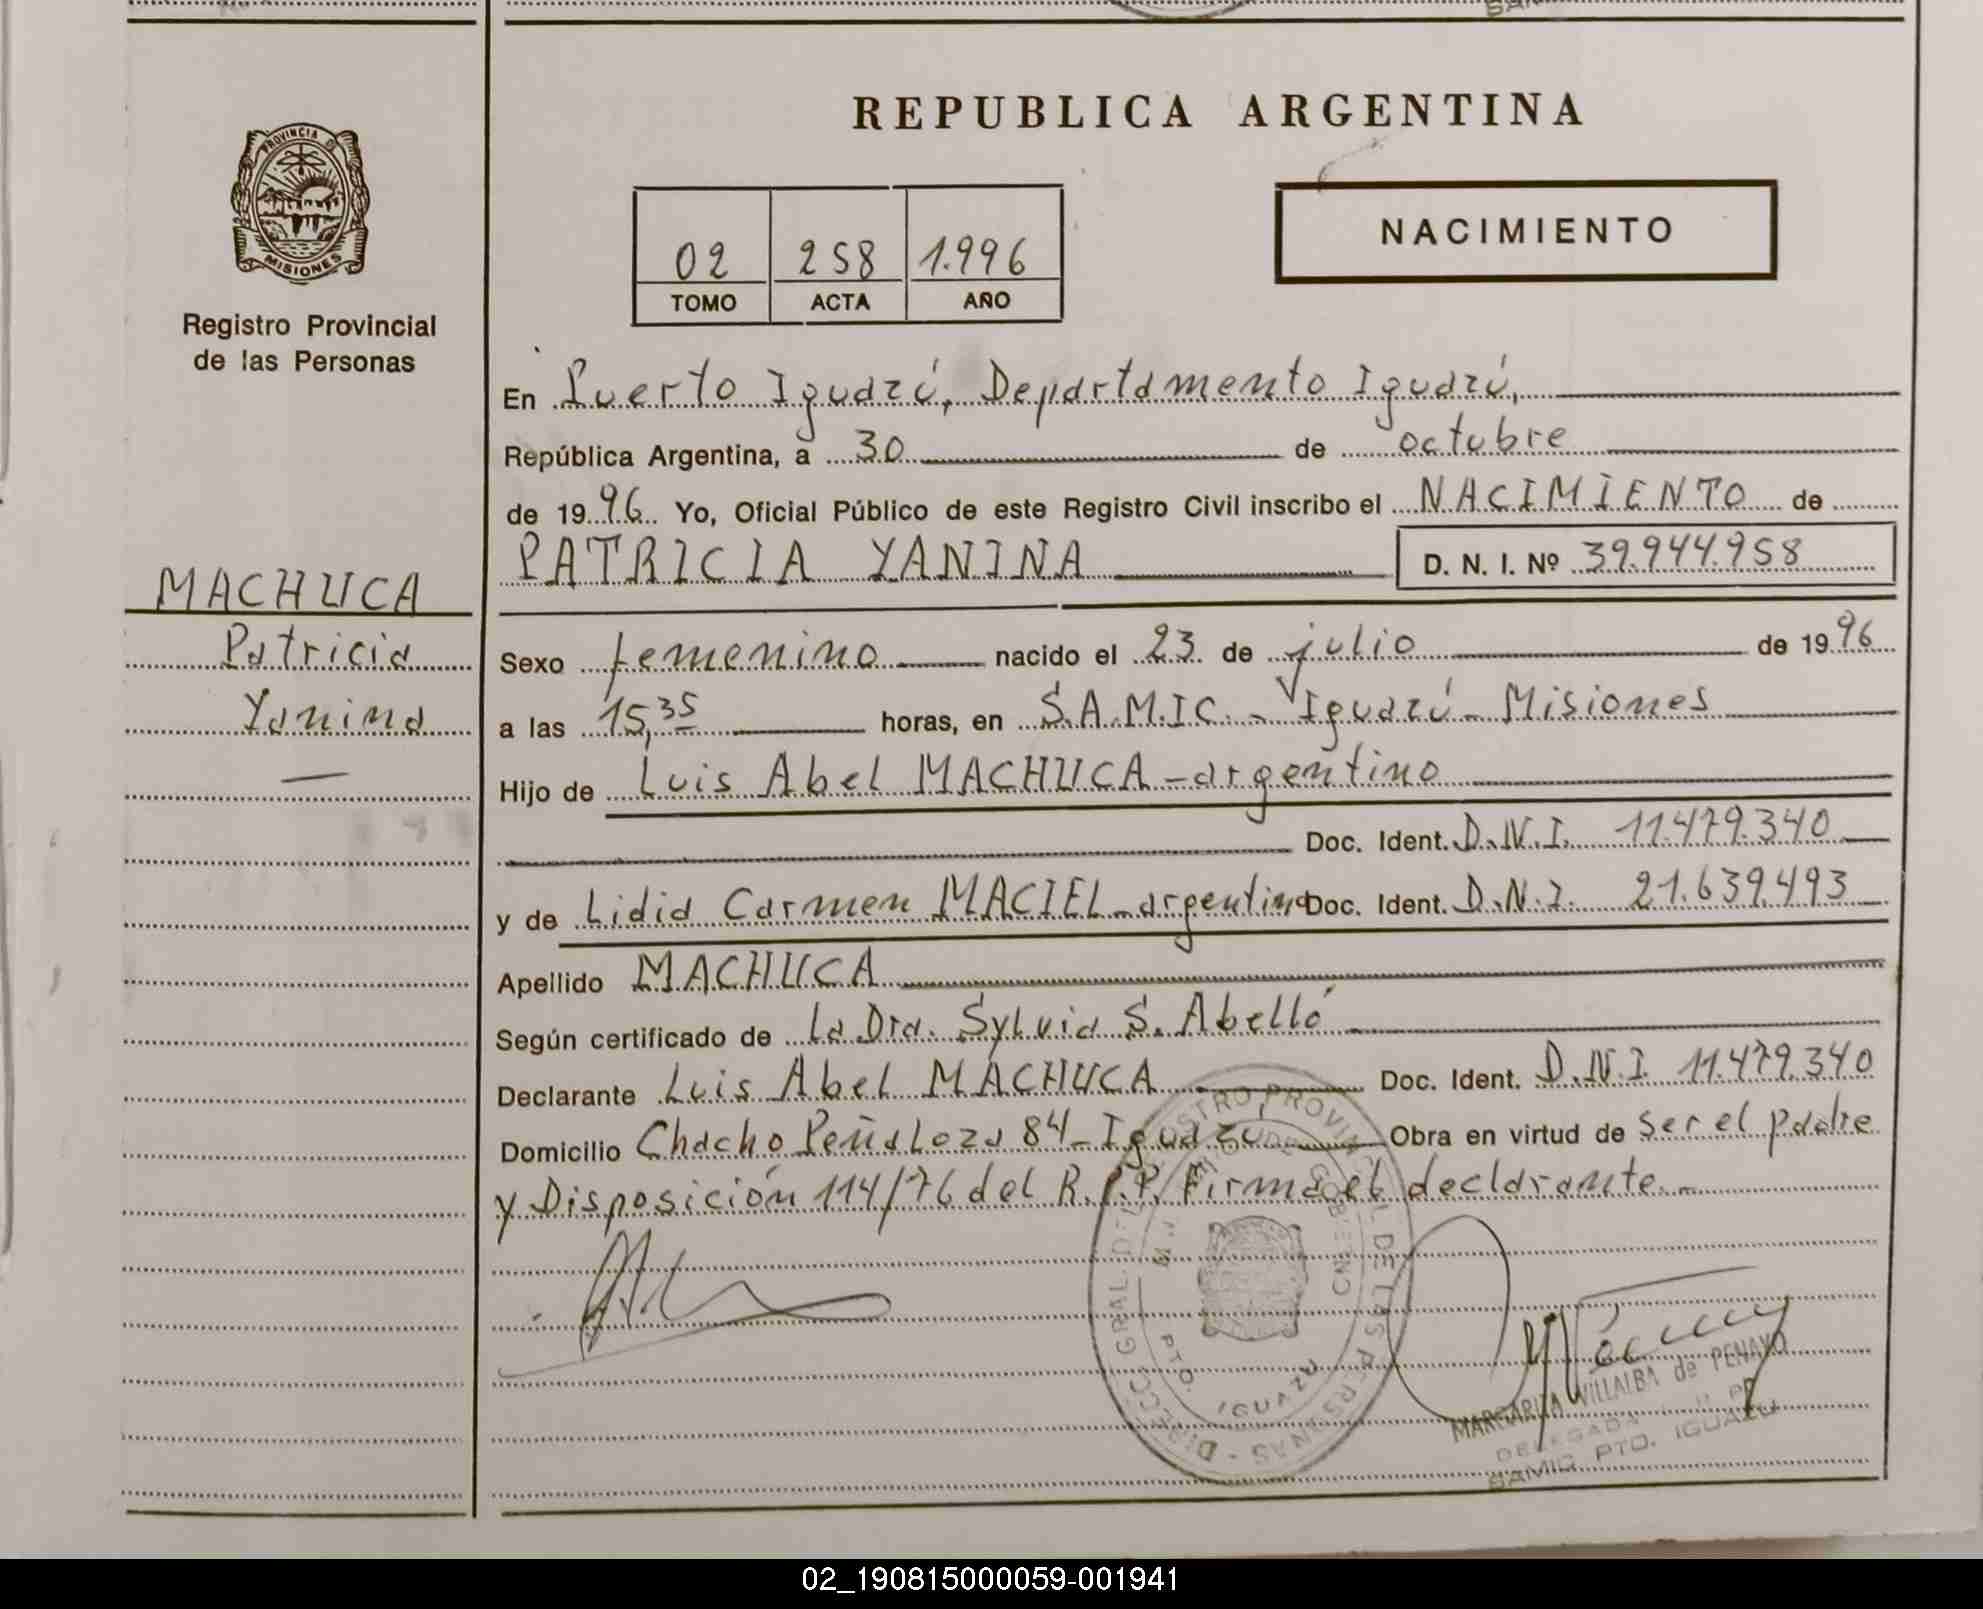 REPUBLICA ARGENTINA
PROVINCIA DE
MISIONES
Registro Provincial
de las Personas
02 258 1.996
TOMO ACTA AÑO
NACIMIENTO
En Puerto Iguazú, Departamento Iguazú,
República Argentina, a 30 de octubre
de 1996. Yo, Oficial Público de este Registro Civil inscribo el NACIMIENTO de
PATRICIA YANINA D. N. I. Nº 39.944.958
MACHUCA
Patricia
Yanina
Sexo femenino nacido el 23 de julio de 1996
a las 15,35 horas, en S.A.M.I.C. - Iguazú - Misiones
Hijo de Luis Abel MACHUCA - argentino
Doc. Ident. D.N.I. 11.479.340
y de Lidia Carmen MACIEL - argentina Doc. Ident. D.N.I. 21.639.493
Apellido MACHUCA
Según certificado de La Dra. Sylvia S. Abelló
Declarante Luis Abel MACHUCA Doc. Ident. D.N.I. 11.479.340
Domicilio Chacho Peñaloza 84 - Iguazú Obra en virtud de ser el padre
y Disposición 114/76 del R.P.P. Firma el declarante. -
DIRECC. GRAL. DEL REGISTRO PROVINCIAL DE LAS PERSONAS -
GOBIERNO
PTO. IGUAZU
MARGARITA VILLALBA de PENAYO
DELEGADA
SAMIC PTO. IGUAZU
02_190815000059-001941